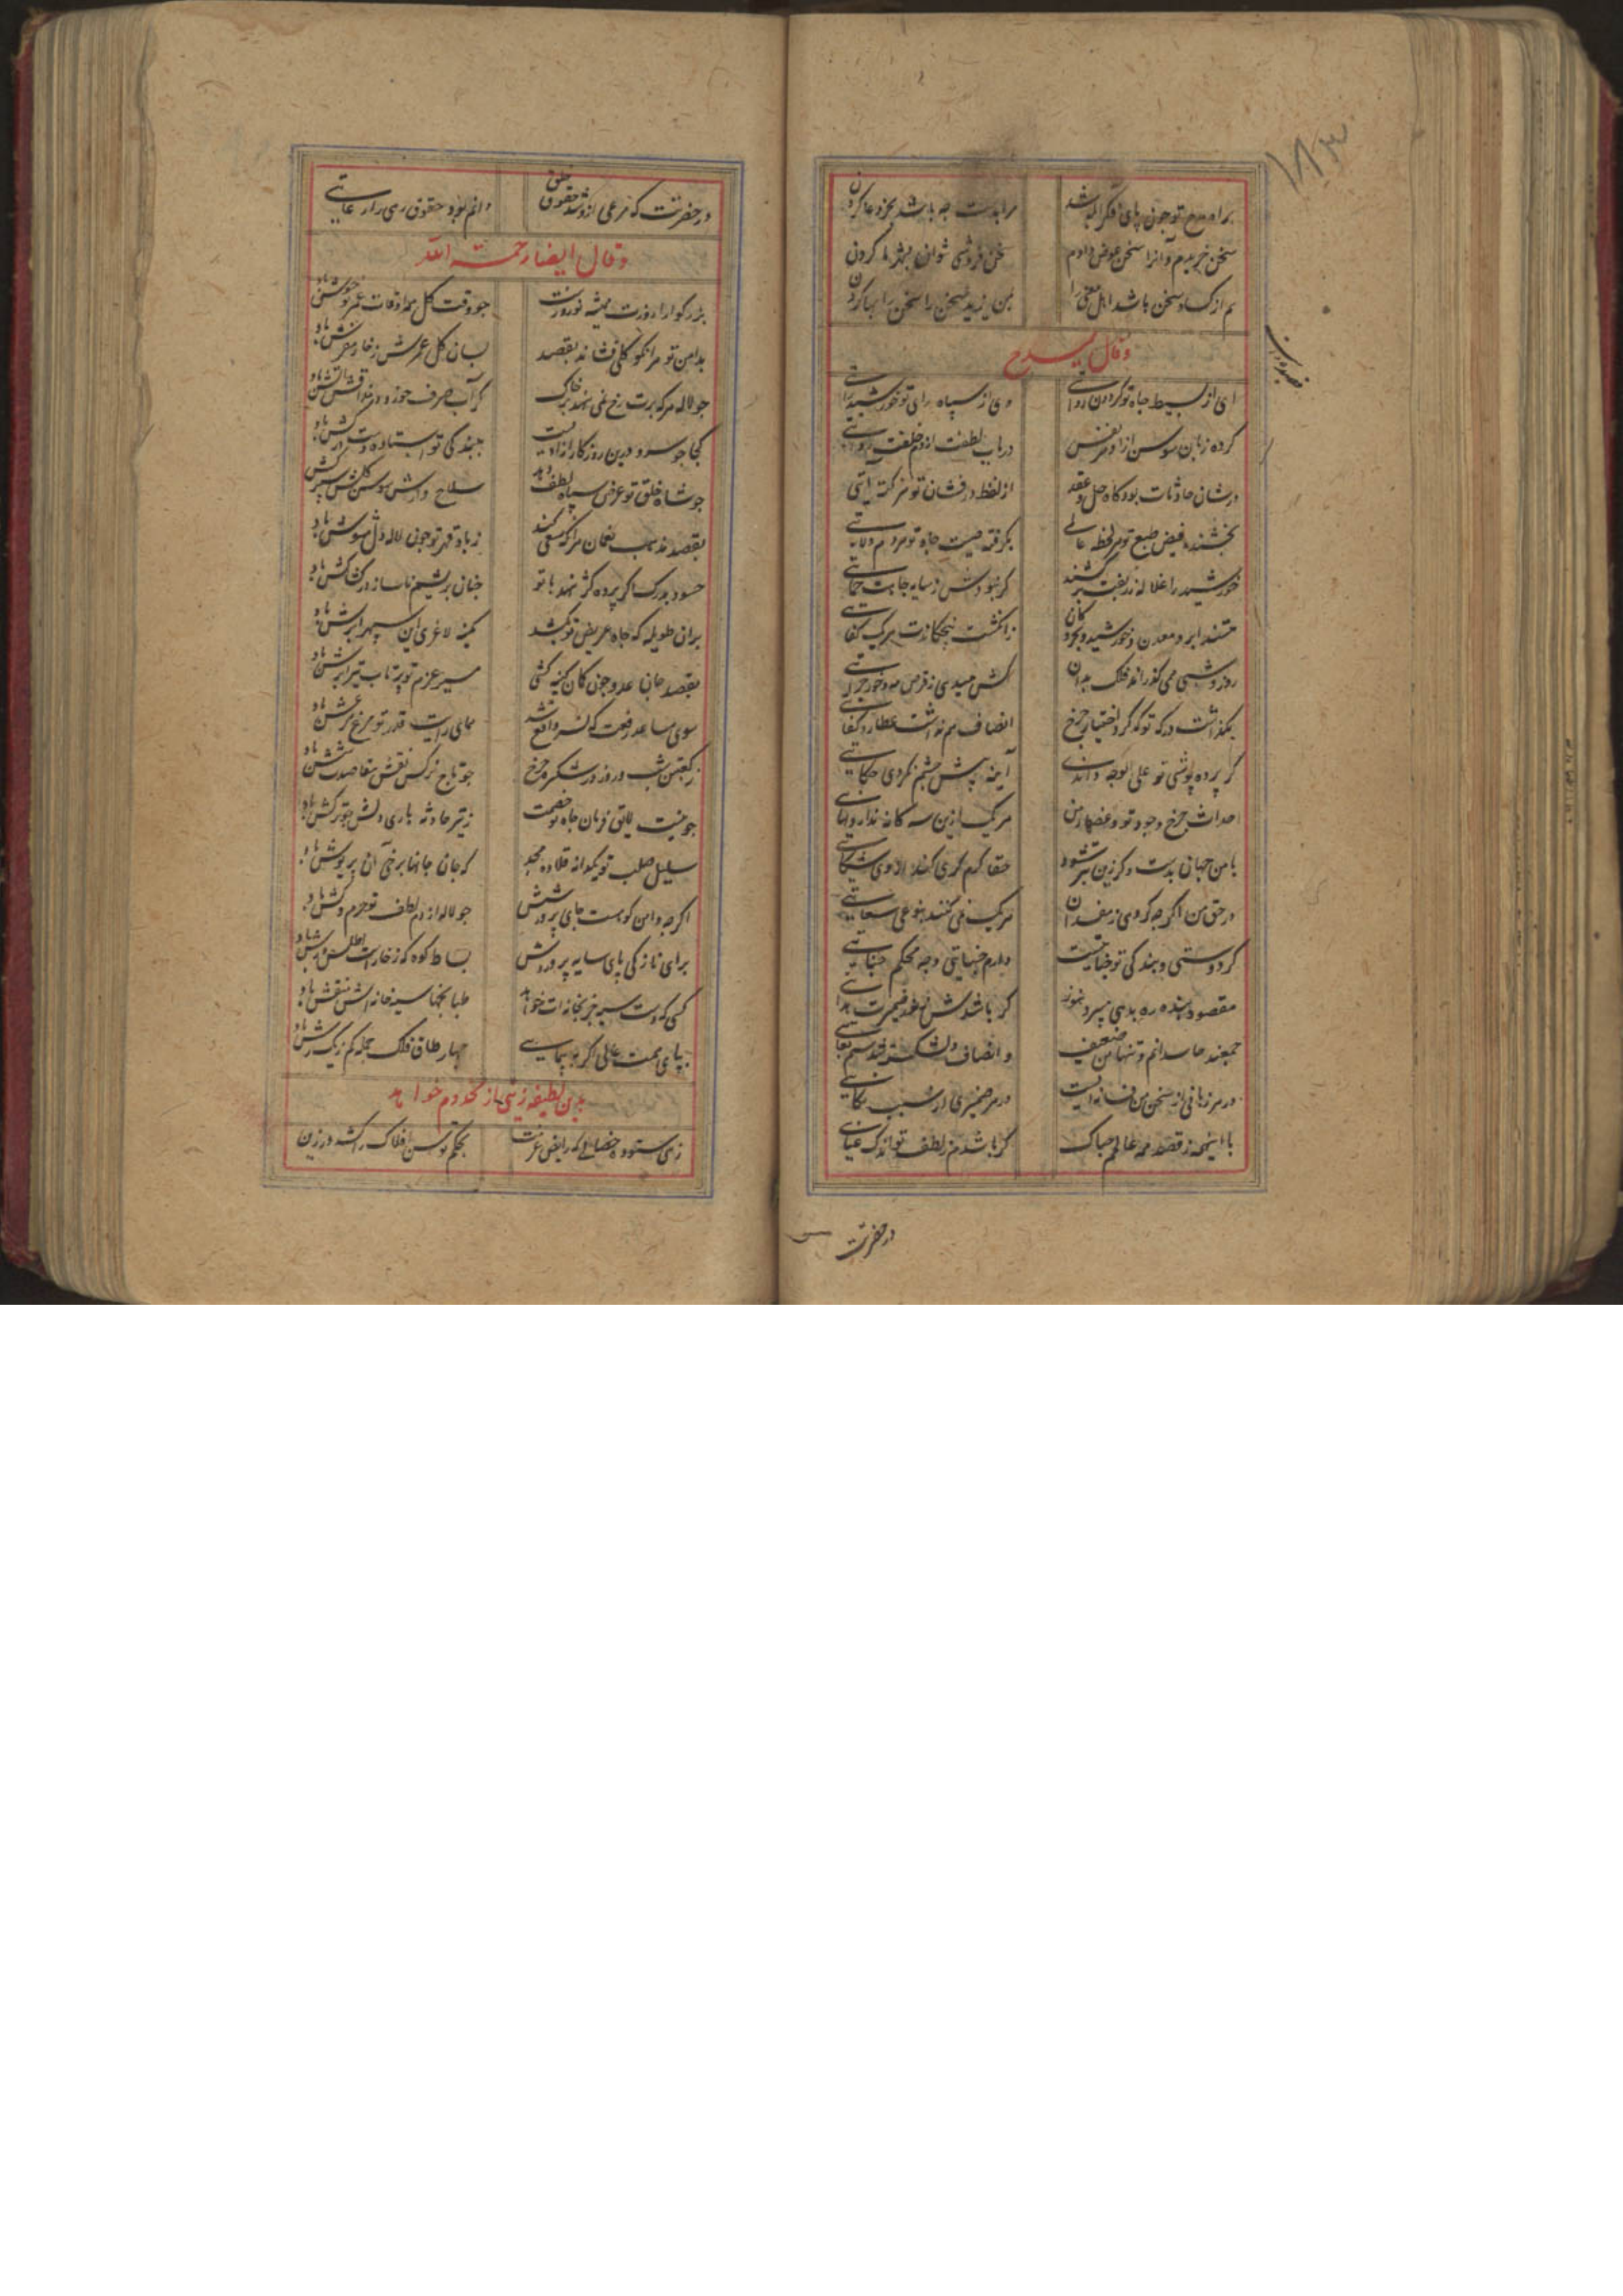 براه مدح تو چون پای فکرآبله شد مرا بدست چه باشد بجز دعا کردن
سخن خریدم و آنرا سخن عوض دادم سخن فروشی توان بهتر ما کردن
هم از کساد سخن باشد اهل معنی را بمن یزید سخن را سخن بها کردن
وقال یمدح
ای از بسیط جاه تو گردون روایتی وی از سپاه رای تو خورشید رایتی
کرده زبان سوسن آزاد هر نفس در باب لطفت از دم خلقت روایتی
در شان حادثات بود گاه حل و عقد از لفظ درفشان تو هر نکته ایتی
بخشنده فیض طبع تو هر لحظه عالمی بگرفته صیت جاه تو هر دم ولایتی
خورشید را غلاله زربفت برکشند گر نبودش ز سایه جاهت حمایتی
هستند ابر و معدن و خورشید و بحر و کان ز انگشت پنجگانت هر یک کفایتی
روز و شبی می گذراند فلک بدان کش میدی ز قرص مه و خور جرایتی
بگذاشت درکه تو که گر اختیار چرخ انصاف هم نداشت عطارد کفایتی
گر پرده پوشی تو علی الوجه داندی آینه پیش چشم نکردی حکایتی
احداث چرخ وجود تو و غصهای من هر یک ازین سه گانه ندارد نهایتی
با من جهان بدست و گر زین بتر شود حقا گرم کری کند از وی شکایتی
در حق من اگر چه کروی ز مفسدان هر یک همی کنند بنوعی سعایتی
گر دوستی و بندگی تو جنایتست دارم جنایتی و چه محکم جنایتی
مقصود بنده ره بدهی میبرد هنوز گر باشدش ز نور ضمیرت هدایتی
جمعند حاسدانم و تنها من ضعیف و انصاف دلشکسته
در هر زبانی از سخن من فسانه ایست در هر ضمیری از سبب نکایتی
با اینهمه ز قصد همه عالم چه باک گر باشدم ز لطف تو اندک عنایتی
در حضرت
در حضرتت که مرعی ازو شد حقوق خلق دانم بود حقوق رهی را رعایتی
وقال ایضا رحمة الله
بزرگوارا روزت همیشه نوروزست چو وقت گل همه اوقات عمر تو خوش باد
بدامن تو هر انکو گلی فشاند بقصد بسان گل عمرش ز خار مفرش باد
چو لاله هر که برت رخ نمی نهد بر خاک گر آب صرف خورد در مذاقش آتش باد
کجا چو سرو درین روزگار آزادیست ببندگی تو استاده دست در کش باد
چو شاه خلق تو عرض سپاه لطف دهد سلاح دارش سوسن گلش سپرکش باد
بقصد مذهب نعمان هر آنکه سعی کند ز باد قهر تو چون لاله دل مشوش باد
حسود بدرگت اگر پرده کژ نهد با تو چنان بریشم ناساز در کشاکش باد
بران طویله که جاه عریض تو بکشد کمینه لاغری این سپهر ابرش باد
بقصد جان عدو چون کمان کینه کشی مسیر عزم تو پرتاب تیر آرش باد
سوی مساعد رفعت که نسر واقع شد همای رایت قدر تو مرغ عرش باد
ز کعبتین شب و روز در ششدره چرخ چو تاج نرگس نقش مقاصدت شش باد
چو نیست لایق قربان جاه تو خصمت ز تیر حادثه باری دلش چو ترکش باد
سلیل صلب تو یکدانه قلاده مجد که جان جانها برخی آن پریوش باد
اگر چه دامن کوهست جای پرورشش چو لاله از دم لطف تو خرم و کش باد
برای نازکی پای سایه پرورش بساط کوه که ز خاراست اطلس وش باد
کسی که دست سیه جز بخانه ات خواهد طباخهاء سیه خانه اش منقش باد
بپای همت عالی اگر بپیمایی چهار طاق فلک جمله کم ز یک رش باد
بدین لطیفه زینی از مخدوم خواهد
زهی ستوده خصالی که رایض عزمت بحکم توسن افلاک را کشد در زین